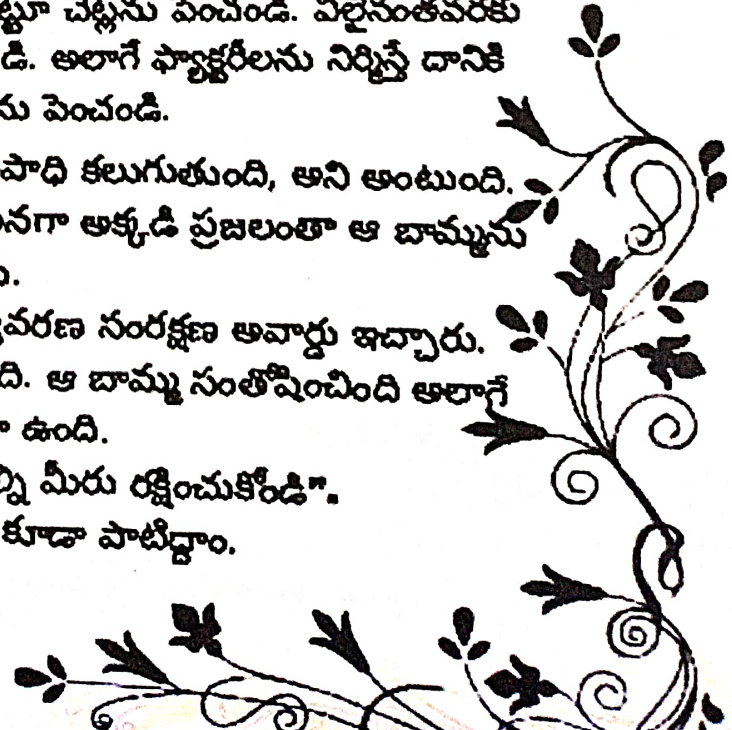 ట్టూ చెట్లను పెంచండి. వీలైనంతవరకు
డి. అలాగే ఫ్యాక్టరీలను నిర్మిస్తే దానికి
ను పెంచండి.
పాధి కలుగుతుంది, అని అంటుంది.
నగా అక్కడి ప్రజలంతా ఆ బామ్మను
వరణ సంరక్షణ అవార్డు ఇచ్చారు.
ది. ఆ బామ్మ సంతోషించింది అలాగే
ఉంది.
ల్ని మీరు రక్షించుకోండి".
కూడా పాటిద్దాం.